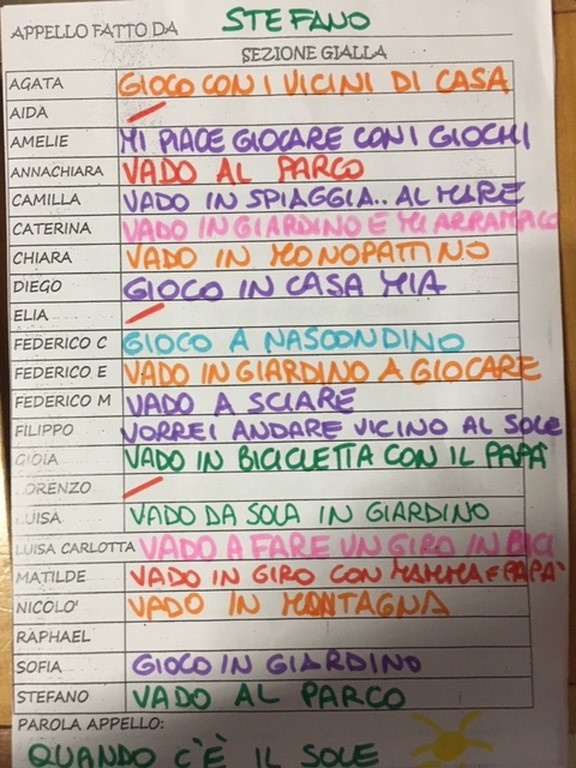 APPELLO FATTO DA STEFANO
SEZIONE GIALLA
AGATA GIOCO CON I VICINI DI CASA
AIDA
AMELIE MI PIACE GIOCARE CON I GIOCHI
ANNACHIARA VADO AL PARCO
CAMILLA VADO IN SPIAGGIA.. AL MARE
CATERINA VADO IN GIARDINO E MI ARRAMPICO
CHIARA VADO IN MONOPATTINO
DIEGO GIOCO IN CASA MIA
ELIA
FEDERICO C GIOCO A NASCONDINO
FEDERICO E VADO IN GIARDINO A GIOCARE
FEDERICO M VADO A SCIARE
FILIPPO VORREI ANDARE VICINO AL SOLE
GIOIA VADO IN BICICLETTA CON IL PAPÀ
LORENZO
LUISA VADO DA SOLA IN GIARDINO
LUISA CARLOTTA VADO A FARE UN GIRO IN BICI
MATILDE VADO IN GIRO CON MAMMA E PAPA'
NICOLO' VADO IN MONTAGNA
RAPHAEL
SOFIA GIOCO IN GIARDINO
STEFANO VADO AL PARCO
PAROLA APPELLO:
QUANDO C'È IL SOLE